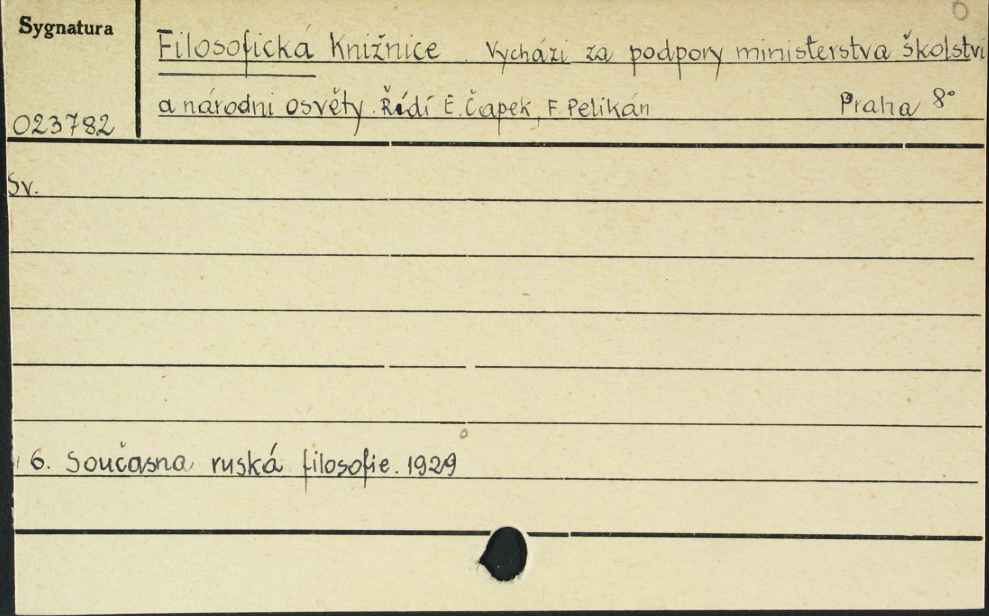 Sygnatura
0
Filosofická Knižnice. Vychází za podpory ministerstva školství
a národni osvěty. Řídí E. Čapek, F. Pelikán Praha 8°
023782
Sv.
6. Současna ruská filosofie. 1929